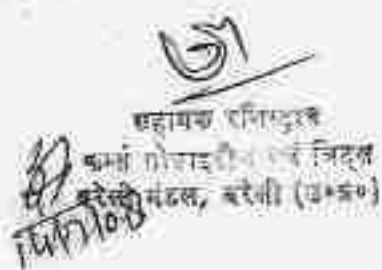 सहायक रजिस्ट्रार
फर्म्स सोसाइटीज एवं चिट्स
बरेली मंडल, बरेली (उ०प्र०)